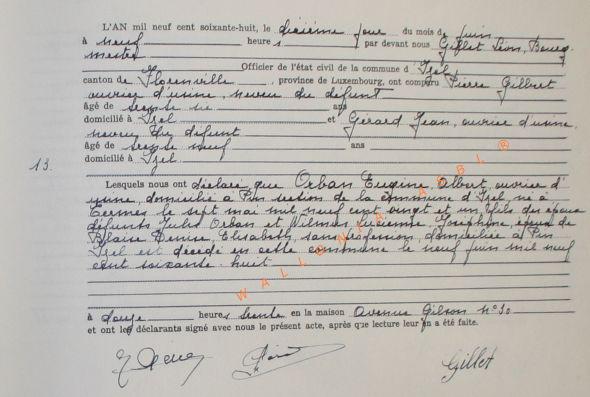 L'AN mil neuf cent soixante-huit, le dixième jour du mois de juin
à neuf heures par devant nous Gillet Léon, Bourg-
mestre
Officier de l'état civil de la commune d'Izel
canton de Florenville, province de Luxembourg, ont comparu Pierre Gilbert
ouvrier d'usine, neveu du défunt
âgé de ans
domicilié à Izel et Gérard Jean, ouvrier d'usine,
neveu du défunt
âgé de neuf ans
13. domicilié à Izel
Lesquels nous ont déclaré que Orban Eugène, Albert, ouvrier d'
usine, domicilié à Pin section de la commune d'Izel né à
Termes le sept mai mil neuf cent vingt et un fils des époux
défunts Jules Orban et Wilmet Lucienne, Joséphine, époux de
Blaise Denise, Elisabeth, sans profession, domiciliée à Pin
Izel est décédé en cette commune le neuf juin mil neuf
cent soixante-huit
WALLONICA ASBL ®
à douze heures trente en la maison Avenue Gilson n°30
et ont les déclarants signé avec nous le présent acte, après que lecture leur en a été faite.
Gillet